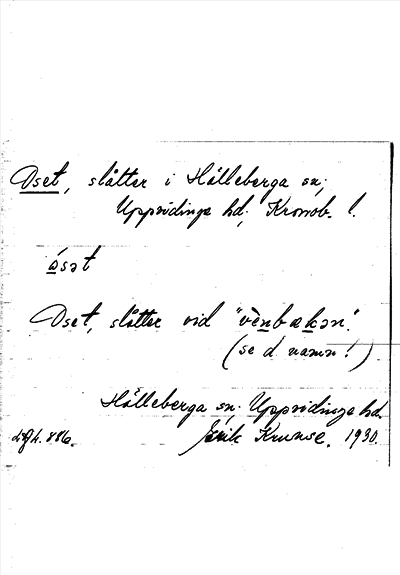 Oset, slåtter i Hälleberga sn;
Uppvidinge hd; Kronob. l.
ósət
Oset, slåtter vid "vènbækən".
(se d. namn!)
Hälleberga sn, Uppvidinge hd.
Erik Krunse. 1930.